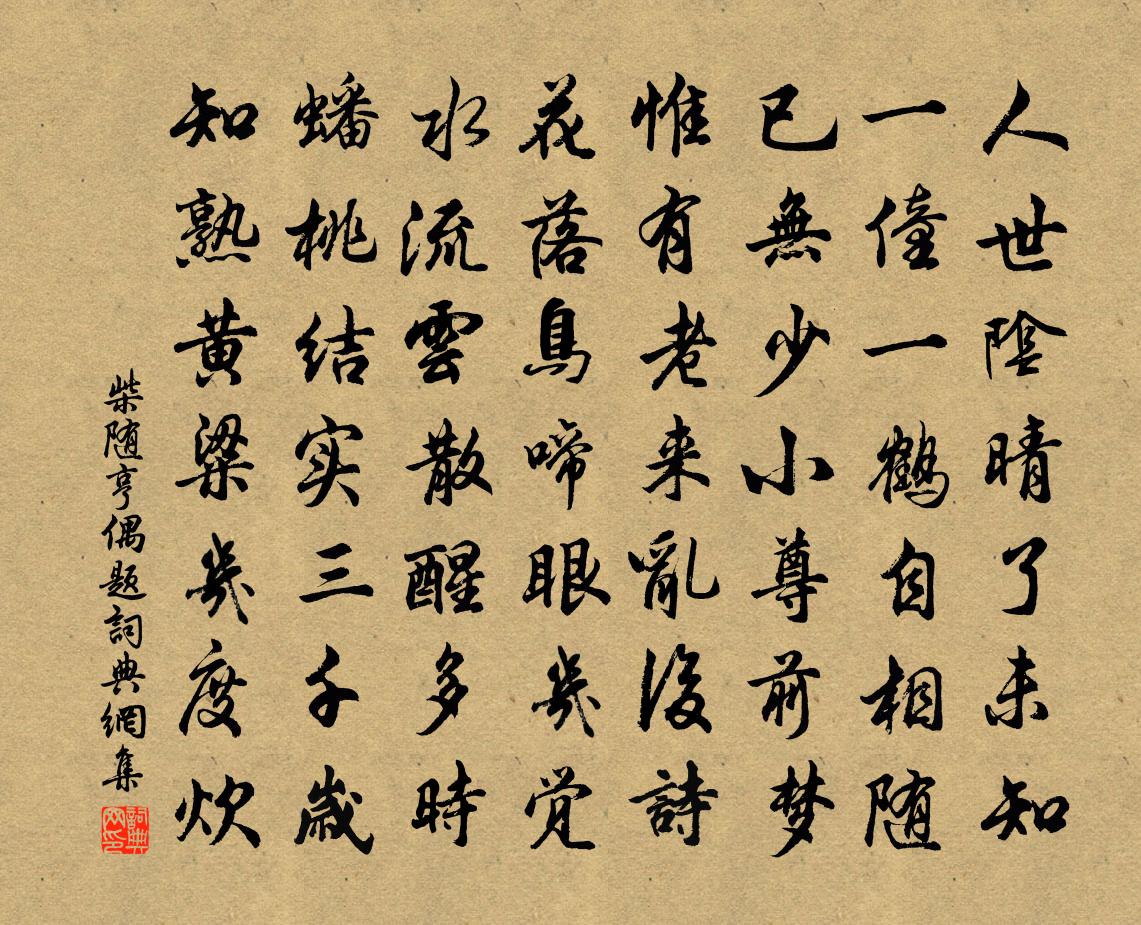 人世陰晴了未知
一僮一鶴自相随
已無少小尊前梦
惟有老来亂後詩
花落鳥啼眼幾覺
水流雲散醒多時
蟠桃结实三千歳
知熟黄粱幾度炊
柴随亨偶题詞典網集
詞典网印